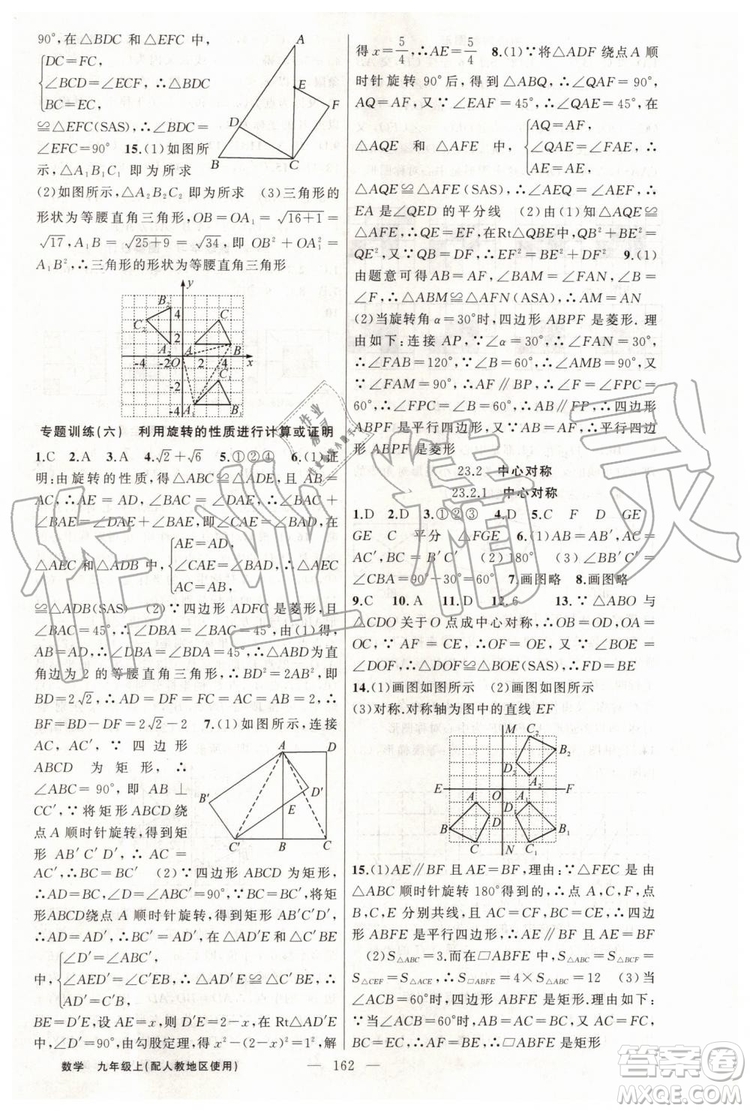 90°,在△BDC和△EFC中,
{DC=FC,
∠BCD=∠ECF,
BC=EC,
∴△BDC
≌△EFC(SAS),∴∠BDC=
∠EFC=90° 15.(1)如图所
示,△A₁B₁C₁ 即为所求
(2)如图所示,△A₂B₂C₂ 即为所求 (3)三角形的
形状为等腰直角三角形,OB=OA₁=√16+1=
√17,A₁B=√25+9=√34,即OB²+OA₁²=
A₁B²,∴三角形的形状为等腰直角三角形
专题训练(六) 利用旋转的性质进行计算或证明
1.C 2.A 3.A 4.√2+√6 5.①②④ 6.(1)证
明:由旋转的性质,得△ABC≌△ADE,且AB=
AC,∴AE=AD,AC=AB,∠BAC=∠DAE,∴∠BAC+
∠BAE=∠DAE+∠BAE,即∠CAE=∠DAB.在
△AEC和△ADB中,
{AE=AD,
∠CAE=∠DAB,
AC=AB,
∴△AEC
≌△ADB(SAS) (2)∵四边形ADFC是菱形,且
∠BAC=45°,∴∠DBA=∠BAC=45°.由(1)得AB=
AD,∴∠DBA=∠BDA=45°,∴△ABD是直
角边为2的等腰直角三角形,∴BD²=2AB²,即
BD=2√2,∴AD=DF=FC=AC=AB=2,∴BF=
BD-DF=2√2-2 7.(1)如图所示,连接
AC,AC′,∵四边形
ABCD为矩形,∴
∠ABC=90°,即AB⊥
CC′,∵将矩形ABCD
绕点A顺时针旋转,得到矩
形AB′C′D′,∴AC=AC′,∴
BC=BC′ (2)∵四边形ABCD为矩形,
∴AD=BC,∠D=∠ABC′=90°,∵BC=BC′,
∴BC′=AD′,∵将矩形
ABCD绕点A顺时针旋转,得到矩形AB′C′D′,
∴AD=AD′,∴BC′=AD′,在△AD′E与△C′BE
中,
{∠D′=∠ABC′,
∠AED′=∠C′EB,
AD′=BC′,
∴△AD′E≌△C′BE,∴
BE=D′E,设BE=D′E=x,∴AE=2-x,在Rt△AD′E
中,∠D′=90°,由勾股定理,得x²+1=(2-x)²,解
得x=5/4,∴AE=5/4 8.(1)∵将△ADF绕点A顺
时针旋转90°后,得到△ABQ,∴∠QAF=90°,
AQ=AF,又∵∠EAF=45°,∴∠QAE=45°,在
△AQE和△AFE中,
{AQ=AF,
∠QAE=∠FAE,
AE=AE,
∴△AQE≌△AFE(SAS),∴∠AEQ=∠AEF,∴
EA是∠QED的平分线 (2)由(1)知△AQE≌
△AFE,∴QE=EF,在Rt△QBE中,∠QBE=90°,
∴QB²+BE²=QE²,又∵QB=DF,∴EF²=BE²+DF² 9.(1)
由题意可得AB=AF,∠BAM=∠FAN,∠B=
∠F=60°,∴△ABM≌△AFN(ASA),∴AM=AN
(2)当旋转角α=30°时,四边形ABPF是菱形.理
由如下:连接AP,∵∠α=30°,∴∠FAN=30°,
∴∠FAB=120°,∵∠B=60°,∴∠AMB=90°,又
∵∠FAN=30°,
∴∠B+∠FAB=180°,∴AF∥BP,∴∠F=∠FPC
=60°,∴∠FPC=∠B=60°,∴AB∥FP,∴四边形
ABPF是平行四边形.∵AB=AF,∴平行四边形
ABPF是菱形
23.2 中心对称
23.2.1 中心对称
1.D 2.D 3.①②③ 4.D 5.C F D GE
GE C 平分 △FGE 6.(1)A,C′ AC=
AC′,BC=B′C′ (2)180° (3)∠BB′C′=
∠CBA=90°-30°=60° 7.画图略 8.画图略
9.C 10.A 11.D 12.6 13.∵△ABO与
△CDO关于O点成中心对称,∴OB=OD,OA=
OC,∵AF=CE,∴OF=OE,在△DOF和△BOE中,OB=OD,∠DOF=
∠BOE,OF=OE,∴△DOF≌△BOE(SAS),∴FD=BE
14.(1)画图如图所示 (2)画图如图所示
(3)对称.对称轴为图中的直线EF
15.(1)AE∥BF且AE=BF.理由:∵△FEC是由
△ABC顺时针旋转180°得到的,∴A,C,F与B,
C,E分别共线,且AC=CF,BC=CE,∴四边
形ABFE是平行四边形,∴AE∥BF且AE=BF
(2)∵S△ABC=3,而在▱ABFE中,S△ABC=S△BCF=
S△CEF=S△ACE,∴S▱ABFE=4×S△ABC=12 (3)当
∠ACB=60°时,四边形ABFE是矩形.理由:
∵∠ACB=60°,AB=AC,∴△ABC是等边三角形,
∴BC=AC,∴AF=BE,∴四边形ABFE是矩形
数学 九年级上(配人教地区使用) — 162 —
作业精灵
答案圈
MXQE.COM